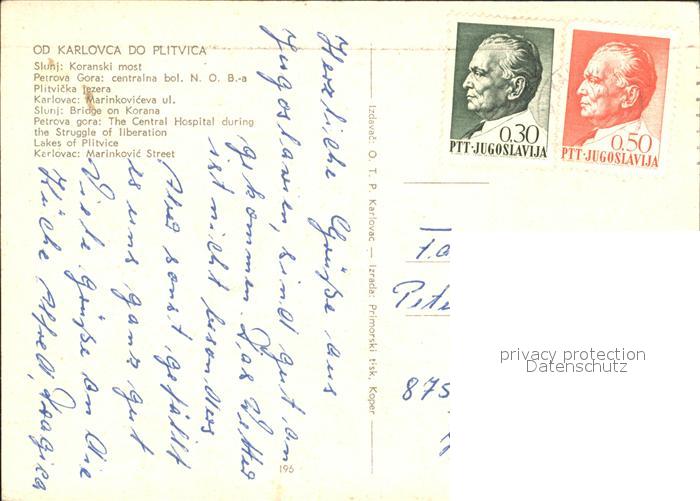 OD KARLOVCA DO PLITVICA
Slunj: Koranski most
Petrova Gora: centralna bol. N. O. B.-a
Plitvička jezera
Karlovac: Marinkovićeva ul.
Slunj: Bridge on Korana
Petrova gora: The Central Hospital during
the Struggle of liberation
Lakes of Plitvice
Karlovac: Marinković Street
Herzliche Grüße aus
Jugoslavien, sind gut an
gekommen. Das Wetter
ist nicht besonders
Aber sonst gefällt
es uns ganz gut
Viele Grüße an die
Küche Alfred, Dragica
196
Izdavač O. T. P. Karlovac — Izrada: Primorski tisk, Koper
0.30
PTT·JUGOSLAVIJA
0.50
PTT·JUGOSLAVIJA
Pete
875
privacy protection
Datenschutz